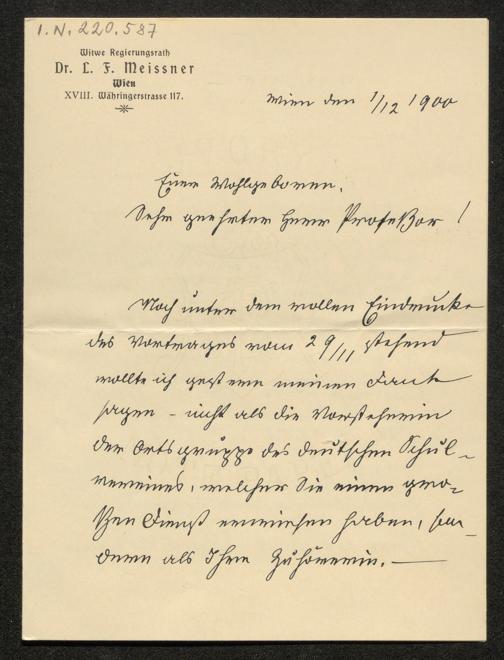 I. N. 220.587
Witwe Regierungsrath
Dr. L. F. Meissner
Wien
XVIII. Währingerstrasse 117.
Wien den 1/12 1900
Euer Wohlgeboren.
Sehr geehrter Herr Profeßor!
Noch unter dem vollen Eindrucke
des Vortrages vom 29/11 stehend
wollte ich gestern meinen Dank
sagen – nicht als die Vorsteherin
der Ortsgruppe des deutschen Schul-
vereines, welcher Sie einen gro-
ßen Dienst erwiesen haben, son-
dern als Ihre Zuhörerin. —